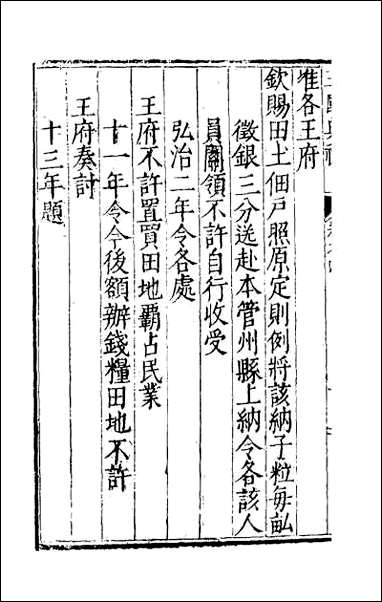 准各王府
欽賜田土佃戶照原定則例將該納子粒每畆
徵銀三分送赴本管州縣上納令各該人
員關領不許自行收受
弘治二年令各處
王府不許置買田地覇占民業
十一年令今後額辦錢糧田地不許
王府奏討
十三年題